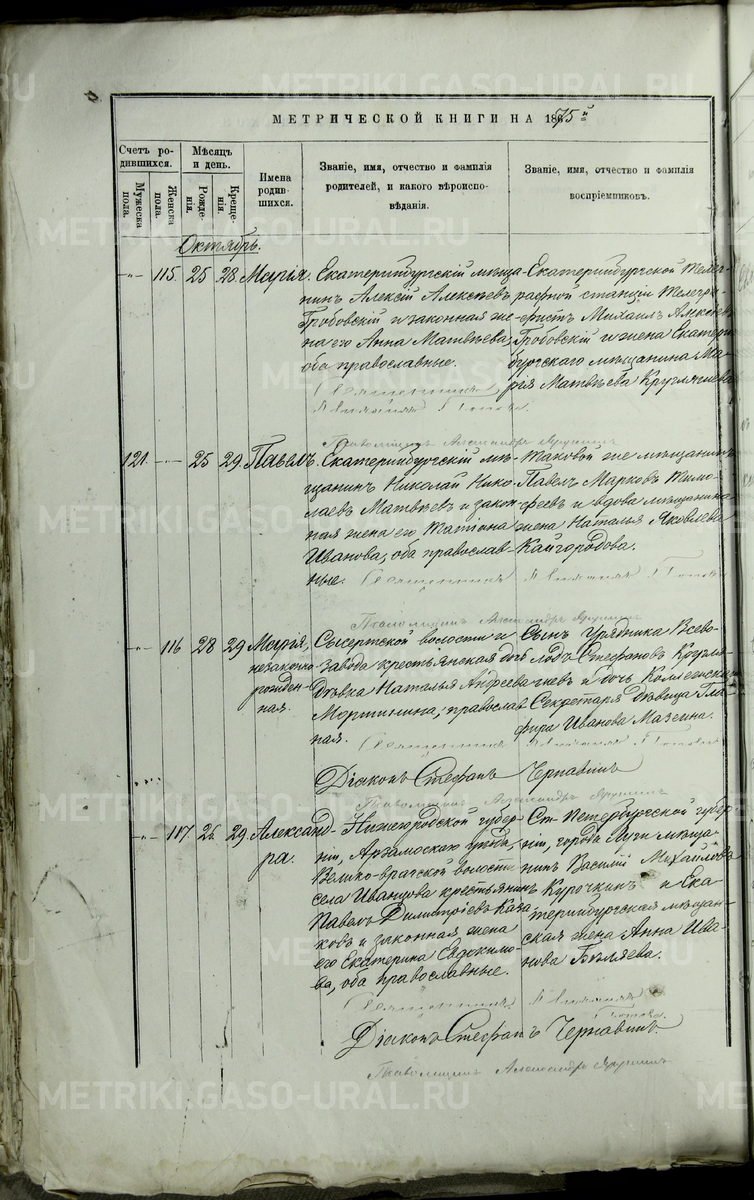 МЕТРИЧЕСКОЙ КНИГИ НА 1875й
Счетъ родившихся.
Мужеска пола.
Женска пола.
Мѣсяцъ и день.
Рожденія.
Крещенія.
Имена родившихся.
Званіе, имя, отчество и фамилія
родителей, и какого вѣроиспо-
вѣданія.
Званіе, имя, отчество и фамилія
воспріемниковъ.
Октябрь.
115. 25 28 Марія.
Екатеринбургскій мѣща-
нинъ Алексѣй Алексѣевъ
Гробовскій и законная же-
на его Анна Матвѣева,
оба православные.
Екатеринбургской Телег-
рафной станціи Телегра-
фистъ Михаилъ Алексѣевъ
Гробовскій и жена Екатерин-
бургскаго мѣщанина Ма-
рья Матвѣева Круглячева
Священникъ
121. 25 29 Павелъ.
Екатеринбургскій мѣ-
щанинъ Николай Нико-
лаевъ Матвѣевъ и закон-
ная жена его Татіана
Иванова, оба православ-
ные.
Таковой же мѣщанинъ
Павелъ Марковъ Тимо-
феевъ и вдова мѣщанина
жена Наталья Яковлева
Кайгородова.
Священникъ
116 28 29 Марія,
незаконно
рожден-
ная.
Сысертской волости и
завода крестьянская доч
дѣвка Наталья Андреева
Мартинина, православ-
ная.
Сынъ Урядника Всево-
лодъ Стефановъ Кругля-
чевъ и дочь Коллежскаго
Секретаря дѣвица Гла-
фира Иванова Мазеина.
Священникъ
Діаконъ Стефанъ Чернавинъ
117 26 29 Александ-
ра.
Нижегородской губер-
ніи, Арзамоскаго уѣзда,
Велико-врагской волости
села Иванцова крестьянинъ
Павелъ Димитріевъ Каза-
ковъ и законная жена
его Екатерина Евдокимо-
ва, оба православные.
Ст-Петербургской губер-
ніи, города Луги мѣща-
нинъ Василій Михайловъ
Курочкинъ и Ека-
теринбургская мѣщан-
ская жена Анна Ива-
нова Бѣляева.
Священникъ
Діаконъ Стефанъ Чернавинъ
METRIKI.GASO-URAL.RU